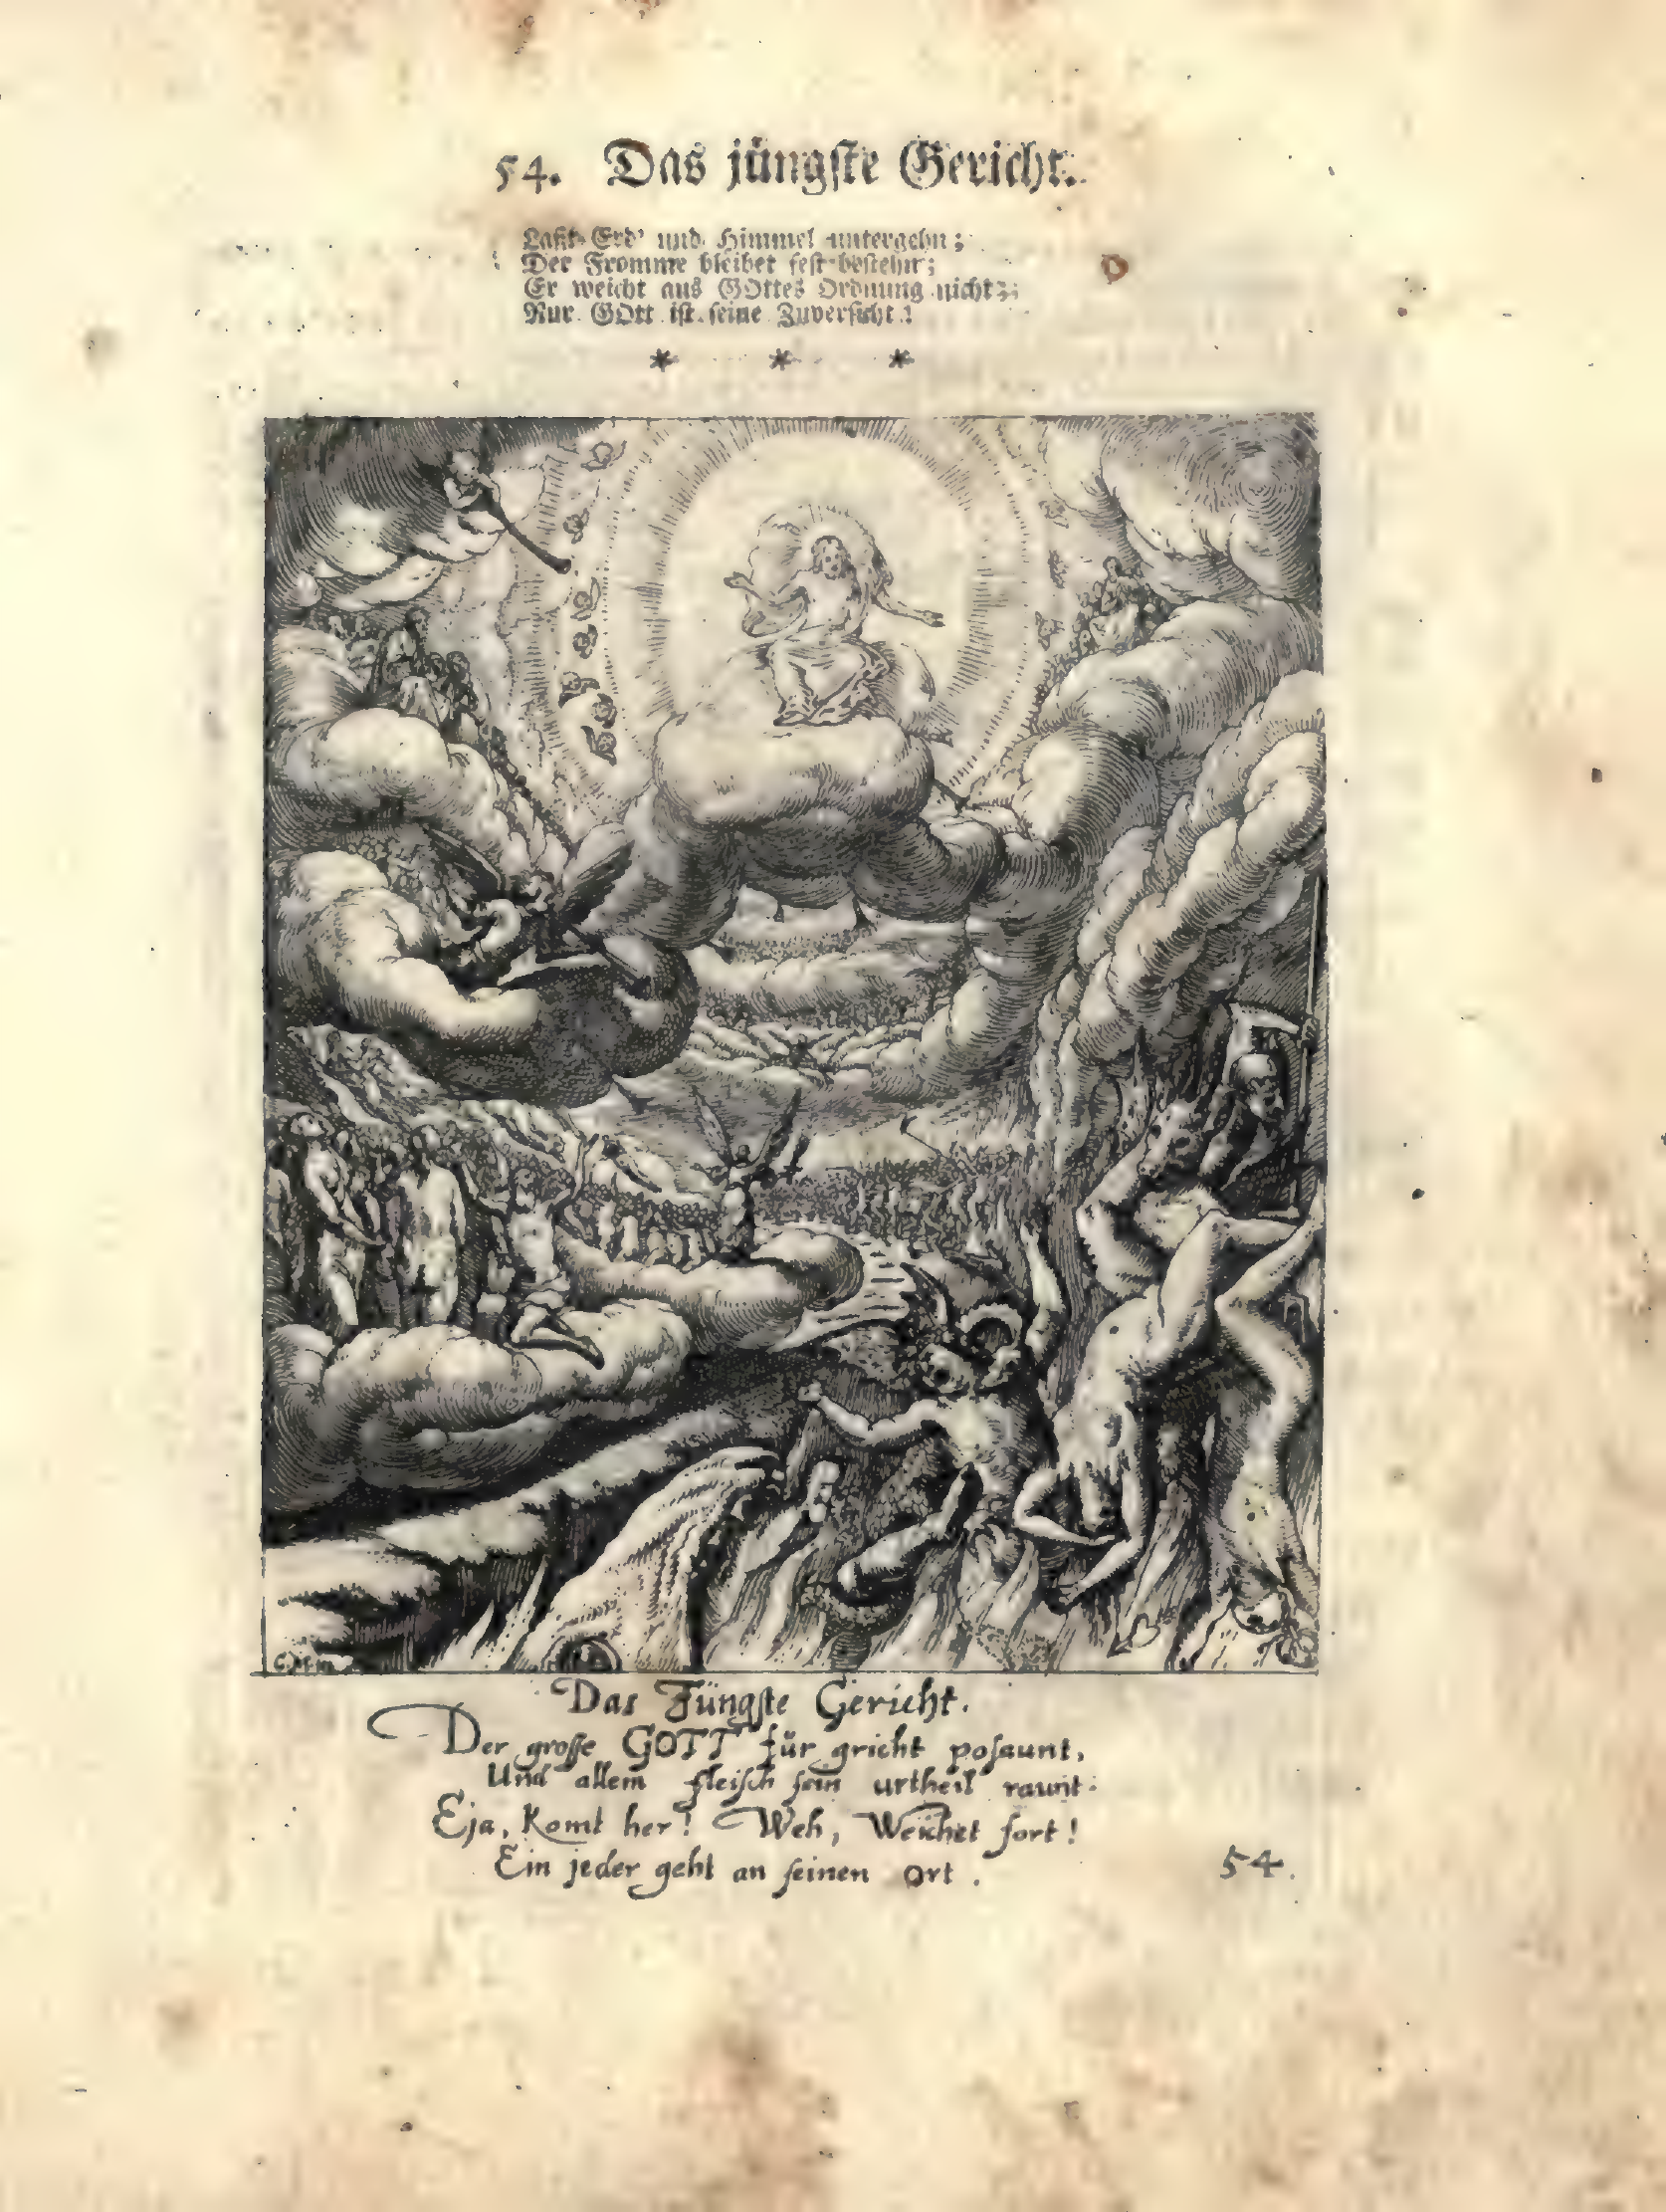 54. Das jüngſte Gericht.
Laßt Erd' und Himmel untergehn;
Der Fromme bleibet feſt beſtehn;
Er weicht aus GOttes Ordnung nicht;
Nur GOtt iſt ſeine Zuverſicht!
* * *
Das Jüngſte Gericht.
Der groſſe GOTT für gricht poſaunt,
Und allem fleiſch ſein urtheil raunt:
Eja, komt her! Weh, Weichet fort!
Ein jeder geht an ſeinen Ort.
54.